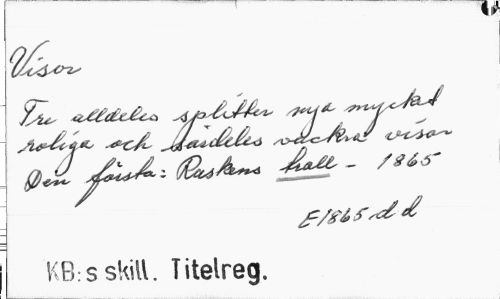 Visor
Tre alldeles splitter nya mycket
roliga och särdeles vackra visor
Den första: Raskens hall - 1865
E1865 d d
KB:s skill. Titelreg.